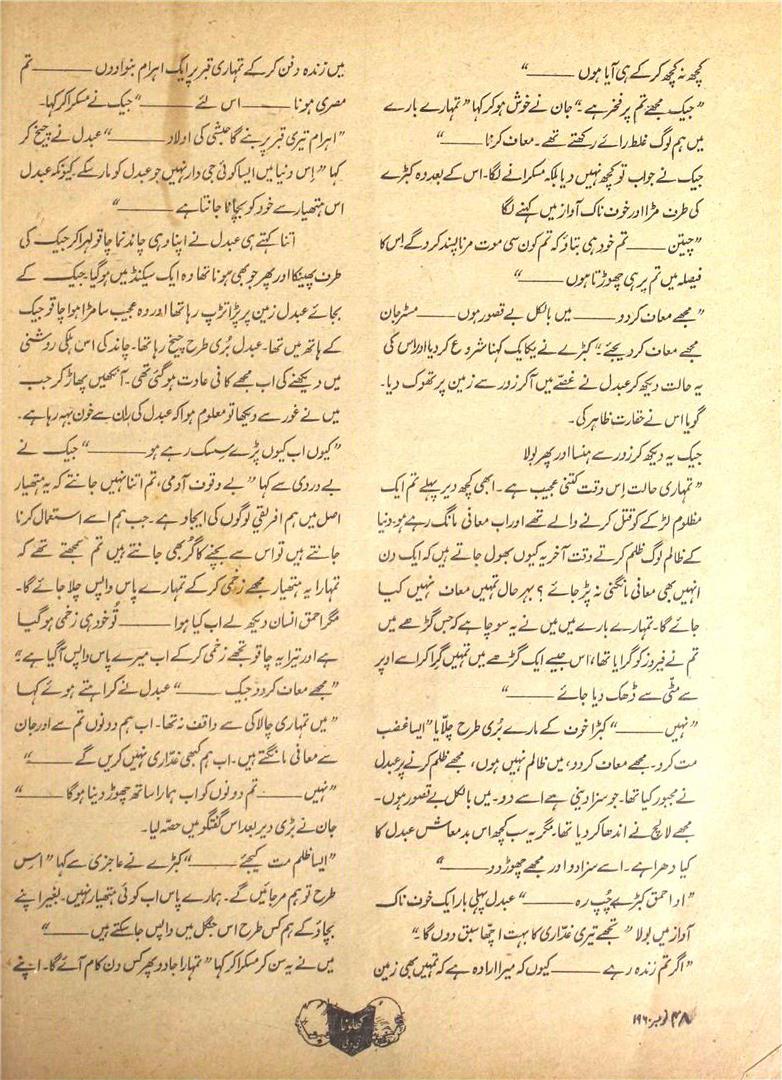 کچھ نہ کچھ کر کے ہی آیا ہوں ——— “
”جیک مجھے تم پر فخر ہے۔“ جان نے خوش ہو کر کہا ”تمہارے بارے
میں ہم لوگ غلط رائے رکھتے تھے۔ معاف کرنا ——— “
جیک نے جواب تو کچھ نہیں دیا بلکہ مسکرانے لگا۔ اس کے بعد وہ کبڑے
کی طرف مڑا اور خوف ناک آواز میں کہنے لگا
”چیتن ——— تم خود ہی بتاؤ کہ تم کون سی موت مرنا پسند کرو گے اِس کا
فیصلہ میں تم پر ہی چھوڑتا ہوں ——— “
”مجھے معاف کر دو ——— میں بالکل بے قصور ہوں ——— مسٹر جان
مجھے معاف کر دیجئے۔“ کبڑے نے یکایک کہنا شروع کر دیا اور اس کی
یہ حالت دیکھ کر عبدل نے غصّے میں آ کر زور سے زمین پر تھوک دیا۔
گویا اس نے حقارت ظاہر کی۔
جیک یہ دیکھ کر زور سے ہنسا اور پھر بولا
”تمہاری حالت اِس وقت کتنی عجیب ہے۔ ابھی کچھ دیر پہلے تم ایک
مظلوم لڑکے کو قتل کرنے والے تھے اور اب معافی مانگ رہے ہو۔ دنیا
کے ظالم لوگ ظلم کرتے وقت آخر یہ کیوں بھول جاتے ہیں کہ ایک دن
انہیں بھی معافی مانگنی نہ پڑ جائے؟ بہر حال تمہیں معاف نہیں کیا
جائے گا۔ تمہارے بارے میں میں نے یہ سوچا ہے کہ جس گڑھے میں
تم نے فیروز کو گرایا تھا، اس جیسے ایک گڑھے میں تمہیں گرا کر اسے اوپر
سے مٹّی سے ڈھک دیا جائے ——— “
”نہیں ——— “ کبڑا خوف کے مارے بُری طرح چلّایا ”ایسا غضب
مت کرو۔ مجھے معاف کر دو، میں ظالم نہیں ہوں، مجھے ظلم کرنے پر عبدل
نے مجبور کیا تھا۔ جو سزا دینی ہے اسے دو۔ میں بالکل بے قصور ہوں۔
مجھے لالچ نے اندھا کر دیا تھا۔ مگر یہ سب کچھ اس بدمعاش عبدل کا
کیا دھرا ہے۔ اسے سزا دو اور مجھے چھوڑ دو ——— “
”او احمق کبڑے چُپ رہ ——— “ عبدل پہلی بار ایک خوف ناک
آواز میں بولا ”تجھے تیری غدّاری کا بہت اچّھا سبق دوں گا۔“
”اگر تم زندہ رہے ——— کیوں کہ میرا ارادہ ہے کہ تمہیں بھی زمین
میں زندہ دفن کر کے تمہاری قبر پر ایک اہرام بنوا دوں ——— تم
مصری ہونا ——— اس لئے ——— “ جیک نے مسکرا کر کہا۔
”اہرام تیری قبر پر بنے گا حبشی کی اولاد ——— “ عبدل نے چیخ کر
کہا ”اِس دنیا میں ایسا کوئی جی دار نہیں جو عبدل کو مار سکے کیونکہ عبدل
اس ہتھیار سے خود کو بچانا جانتا ہے ——— “
اتنا کہتے ہی عبدل نے اپنا وہی چاند نما چاقو لہرا کر جیک کی
طرف پھینکا اور پھر جو بھی ہونا تھا وہ ایک سیکنڈ میں ہو گیا۔ جیک کے
بجائے عبدل زمین پر پڑا تڑپ رہا تھا اور وہ عجیب سا مڑا ہوا چاقو جیک
کے ہاتھ میں تھا۔ عبدل بُری طرح چیخ رہا تھا۔ چاند کی اس ہلکی روشنی
میں دیکھنے کی اب مجھے کافی عادت ہو گئی تھی۔ آنکھیں پھاڑ کر جب
میں نے غور سے دیکھا تو معلوم ہوا کہ عبدل کی ران سے خون بہہ رہا ہے۔
”کیوں اب کیوں پڑے سِسک رہے ہو ——— “ جیک نے
بے دردی سے کہا ”بے وقوف آدمی، تم اتنا نہیں جانتے کہ یہ ہتھیار
اصل میں ہم افریقی لوگوں کی ایجاد ہے۔ جب ہم اسے استعمال کرنا
جانتے ہیں تو اس سے بچنے کا گُر بھی جانتے ہیں تم سمجھتے تھے کہ
تمہارا یہ ہتھیار مجھے زخمی کر کے تمہارے پاس واپس چلا جائے گا۔
مگر احمق انسان دیکھ لے اب کیا ہوا ——— تُو خود ہی زخمی ہو گیا
ہے اور تیرا یہ چاقو تجھے زخمی کر کے اب میرے پاس واپس آ گیا ہے۔“
”مجھے معاف کر دو جیک ——— “ عبدل نے کراہتے ہوئے کہا
”میں تمہاری چالاکی سے واقف نہ تھا۔ اب ہم دونوں تم سے اور جان
سے معافی مانگتے ہیں۔ اب ہم کبھی غدّاری نہیں کریں گے ——— “
”نہیں ——— تم دونوں کو اب ہمارا ساتھ چھوڑ دینا ہو گا ——— “
جان نے بڑی دیر بعد اس گفتگو میں حصّہ لیا۔
”ایسا ظلم مت کیجئے ——— “ کبڑے نے عاجزی سے کہا ”اس
طرح تو ہم مر جائیں گے۔ ہمارے پاس اب کوئی ہتھیار نہیں۔ بغیر اپنے
بچاؤ کے ہم کس طرح اس جنگل میں واپس جا سکتے ہیں ——— “
میں نے یہ سن کر مسکرا کر کہا ”تمہارا جادو پھر کس دن کام آئے گا۔ اپنے
۴۸ نومبر ۱۹۶۰ء
کھلونا
نئی دہلی